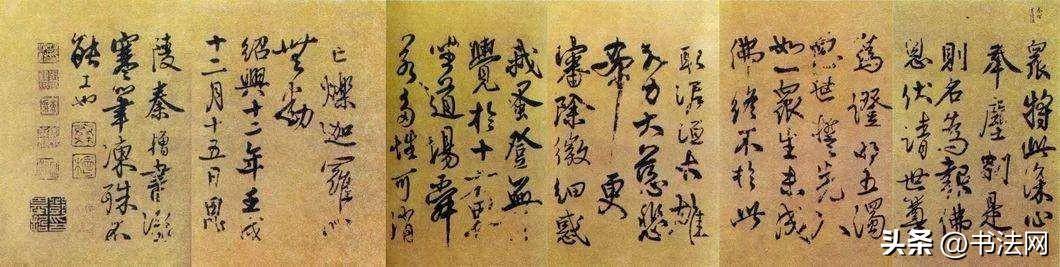 眾將此深心
奉塵剎是
則名為報佛
恩伏請世尊
為證明五濁
惡世誓先入
如一眾生未成
佛終不於此
取泥洹大雄
大力大慈悲
希更
審除微細惑
我早登無
覺於十方界
坐道場舜
若多性可消
亡爍迦羅心
無動
紹興十二年壬戌
十二月十五日
陵秦檜書
寒筆凍殊不
能工也
头条 @书法网